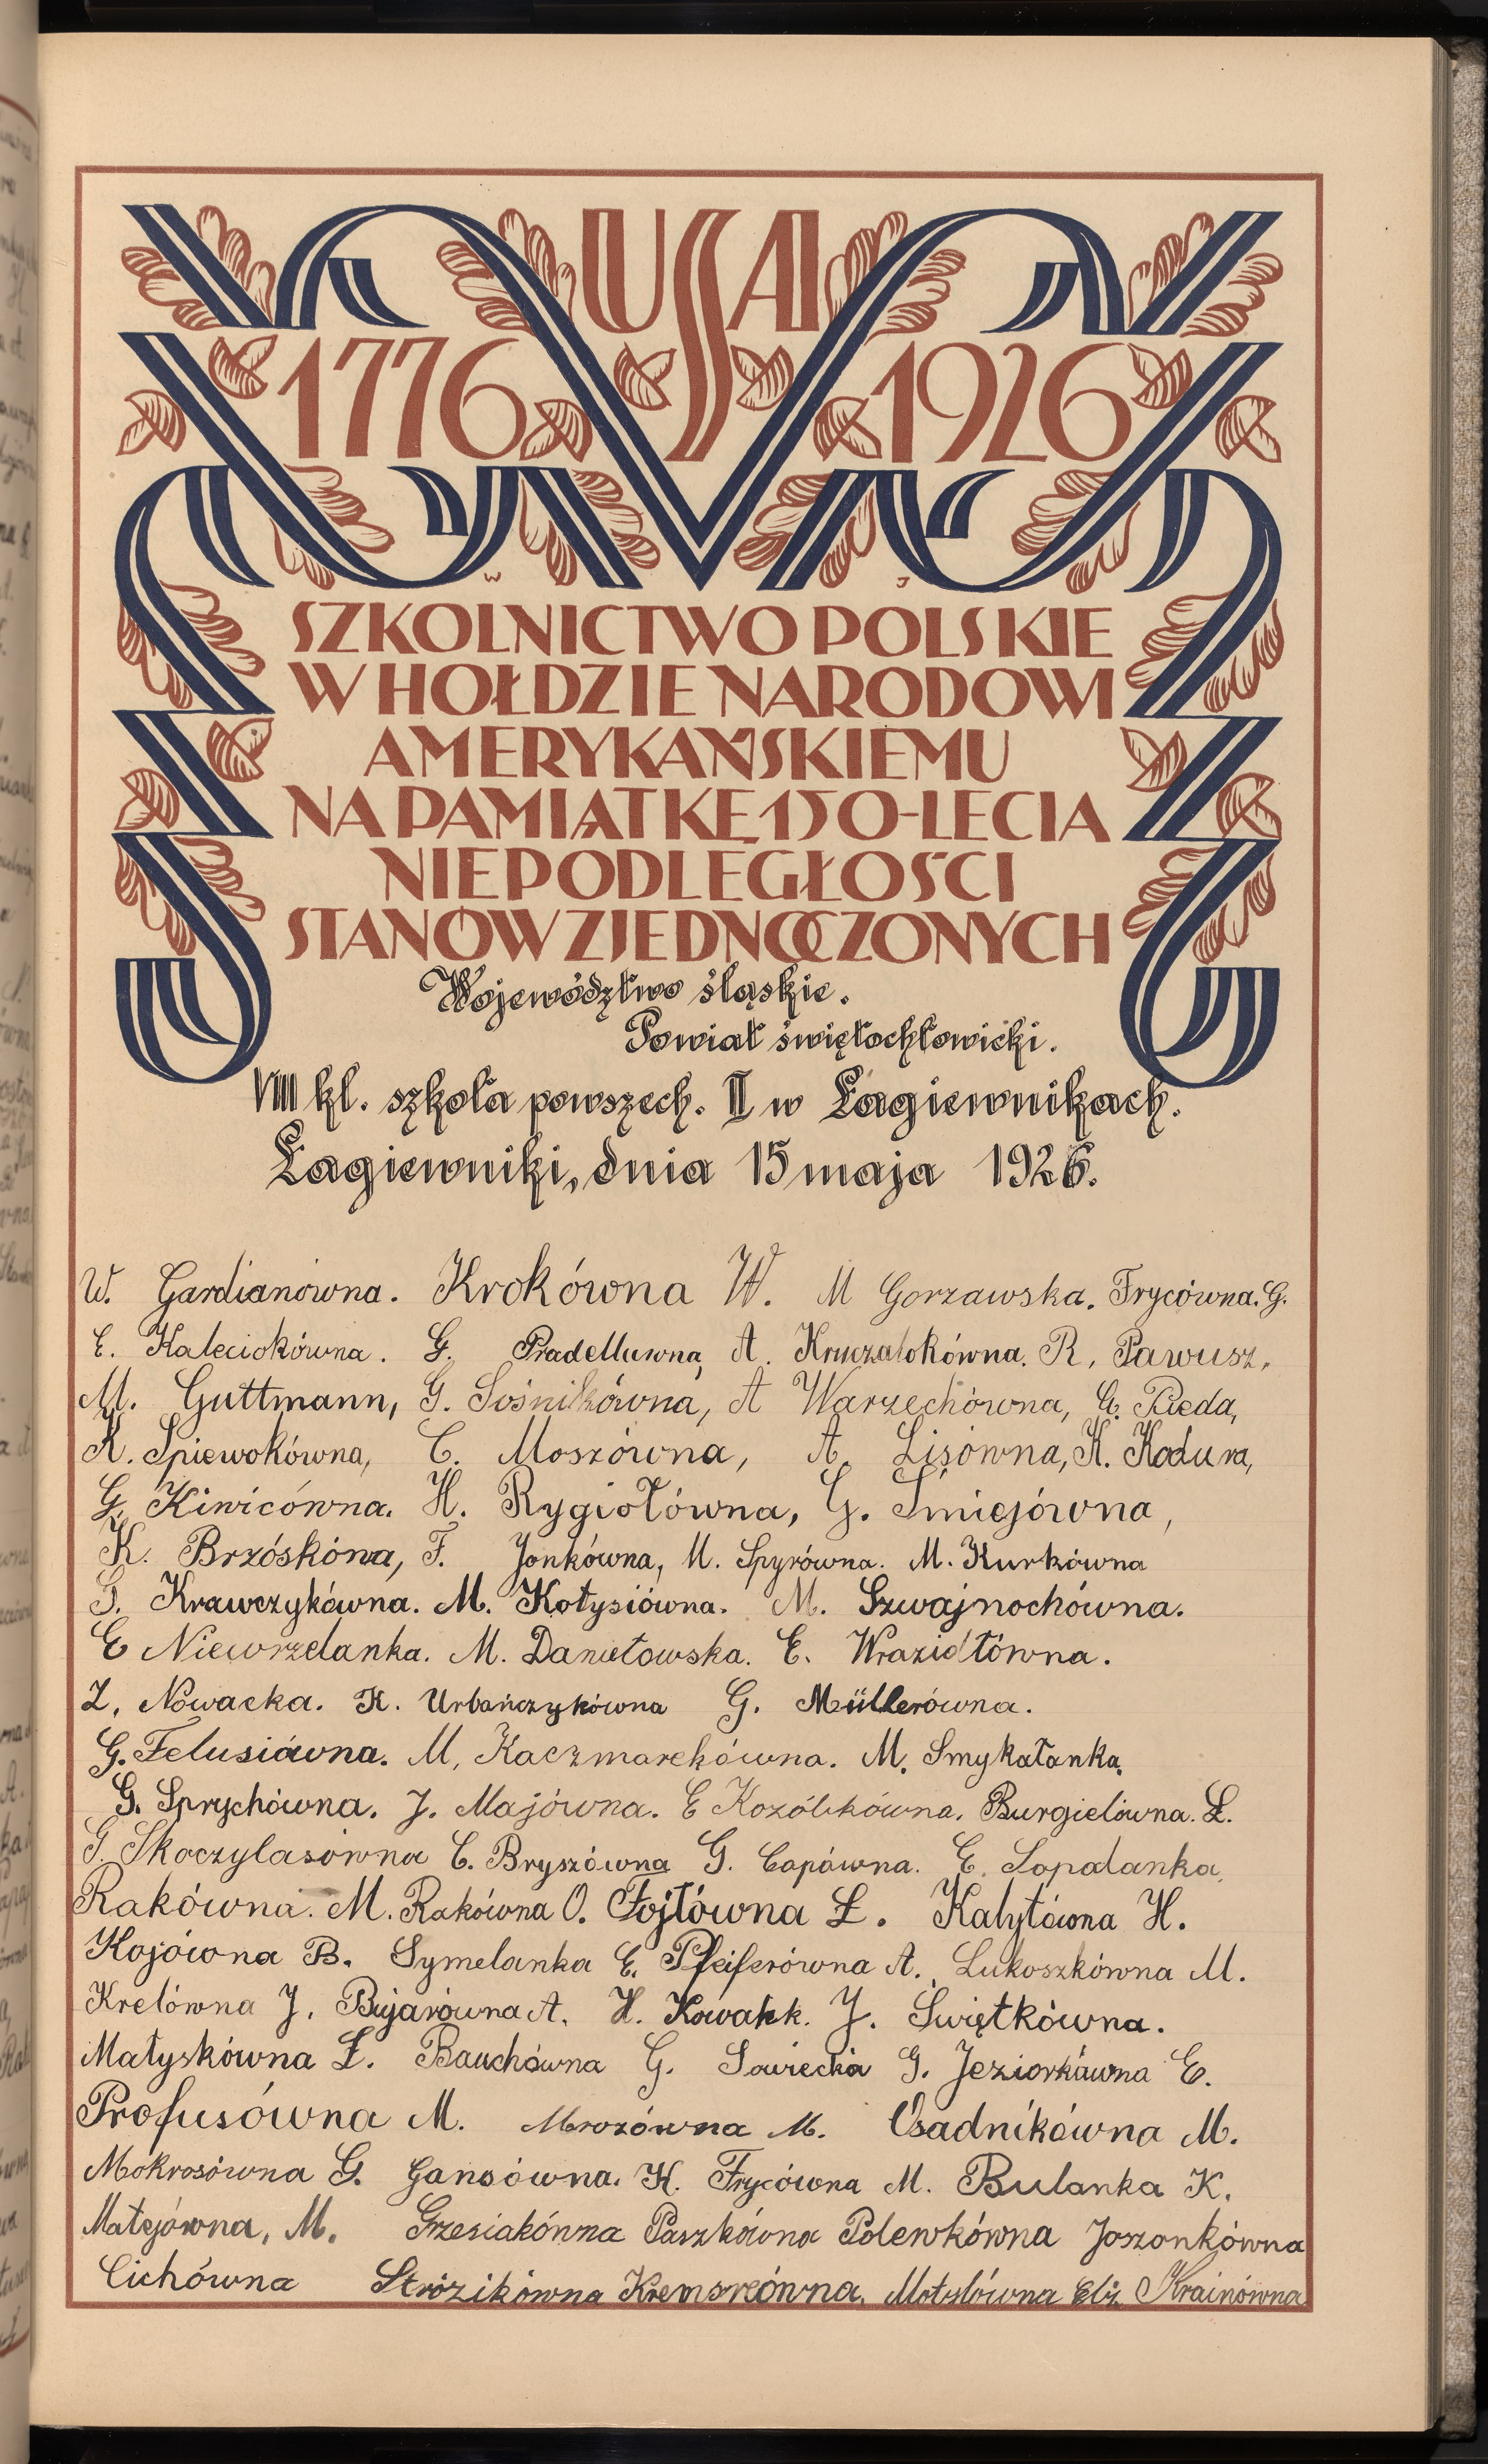 USA
1776 1926
W J
SZKOLNICTWO POLSKIE
W HOŁDZIE NARODOWI
AMERYKAŃSKIEMU
NA PAMIĄTKĘ 150-LECIA
NIEPODLEGŁOŚCI
STANÓW ZJEDNOCZONYCH
Województwo śląskie.
Powiat świętochłowicki.
VIII kl. szkoła powszech. II w Łagiewnikach.
Łagiewniki, dnia 15 maja 1926.
W. Gardianówna. Krokówna W. M Gorzawska. Frycówna. G.
E. Kaleciokówna. G. Pradellówna, A. Kruczalokówna. R. Pawusz,
M. Guttmann, G. Sośnikówna, A Warzechówna, G. Pieda,
K. Śpiewokówna, C. Moszówna, A. Lisówna, K. Kodura,
G. Kiwicówna. H. Rygiołówna, G. Śmiejówna,
K. Brzóskówna, F. Jonkówna, M. Spyrówna. M. Kurkówna
G. Krawczykówna. M. Kołysiówna. M. Szwajnochówna.
E Niewrzelanka. M. Danielowska. E. Wrazidłówna.
Z. Nowacka. K. Urbańczykówna G. Müllerówna.
G. Felusiówna. M. Kaczmarekówna. M. Smykałanka.
G. Sprychówna. J. Majówna. E Kozólkówna. Burgielówna. Ł.
G. Skoczylasówna C. Bryszówna G. Capówna. E. Lopalanka,
Rakówna. M. Rakówna O. Fojtówna Ł. Kalytówna H.
Kojówna B. Symelanka E. Pfeiferówna A. Lukoszkówna M.
Krelówna J. Bujarówna A. H. Kowalik. J. Świętkówna.
Matyskówna Ł. Bauchówna G. Sowiecka G. Jeziorkówna E.
Profusówna M. Mrozówna M. Osadnikówna M.
Mokrosówna G. Gansówna. H. Frycówna M. Bulanka K.
Matejówna, M. Grzesiakówna Paszkówna Polewkówna Joszonkówna
Cichówna Strózikówna Kremsreówna, Motylówna Elż Krainówna